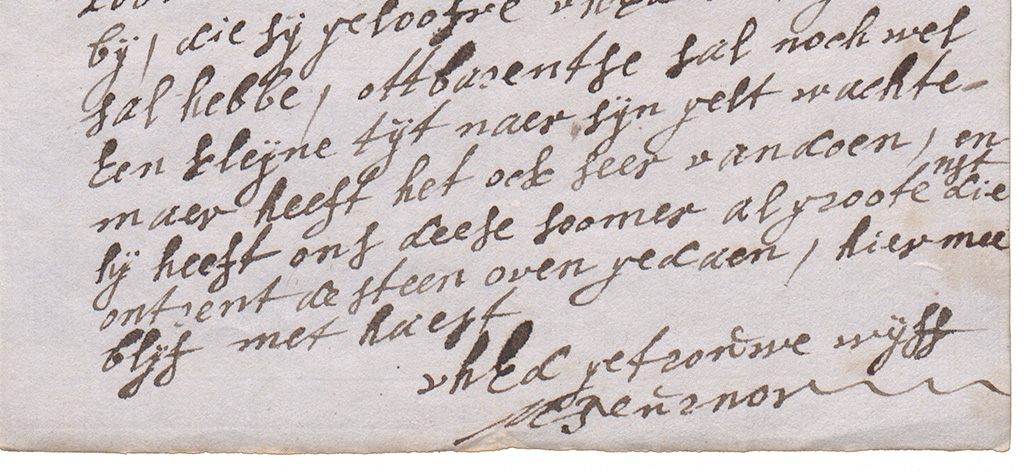 bij / die sij geloofve uhEd
sal hebbe / ottbarentse sal noch wel
Een kleijne tijt naer sijn gelt wachte-
maer heeft het ock seer van doen / en
hij heeft ons deese soomer al groote dienst
ontrent de steen oven gedaen / hier mee
blijf met haest
uhEd getrouwe wijff